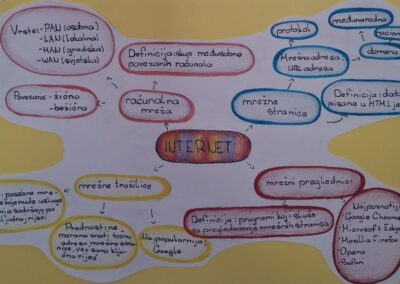 Vrste: - PAN (osobna)
- LAN (lokalna)
- MAN (gradska)
- WAN (svjetska)
Definicija: skup međusobno
povezanih računala
Povezana: - žično
- bežično
računalna
mreža
protokol
međunarodna
Mrežna adresa:
URL adresa
domena
mrežne
stranice
Definicija:
pisane u HTML
INTERNET
mrežne tražilice
mrežni preglednici
Definicija: programi koji služe
za pregledavanje mrežnih stranica
Najpoznatiji:
- Google Chrome
- Microsoft Edge
- Mozilla Firefox
- Opera
- Safari
Prednost: ne
moramo znati točnu
adresu mrežne stra-
nice, već samo klju-
čnu riječ
Najpopularnija:
Google
usluge